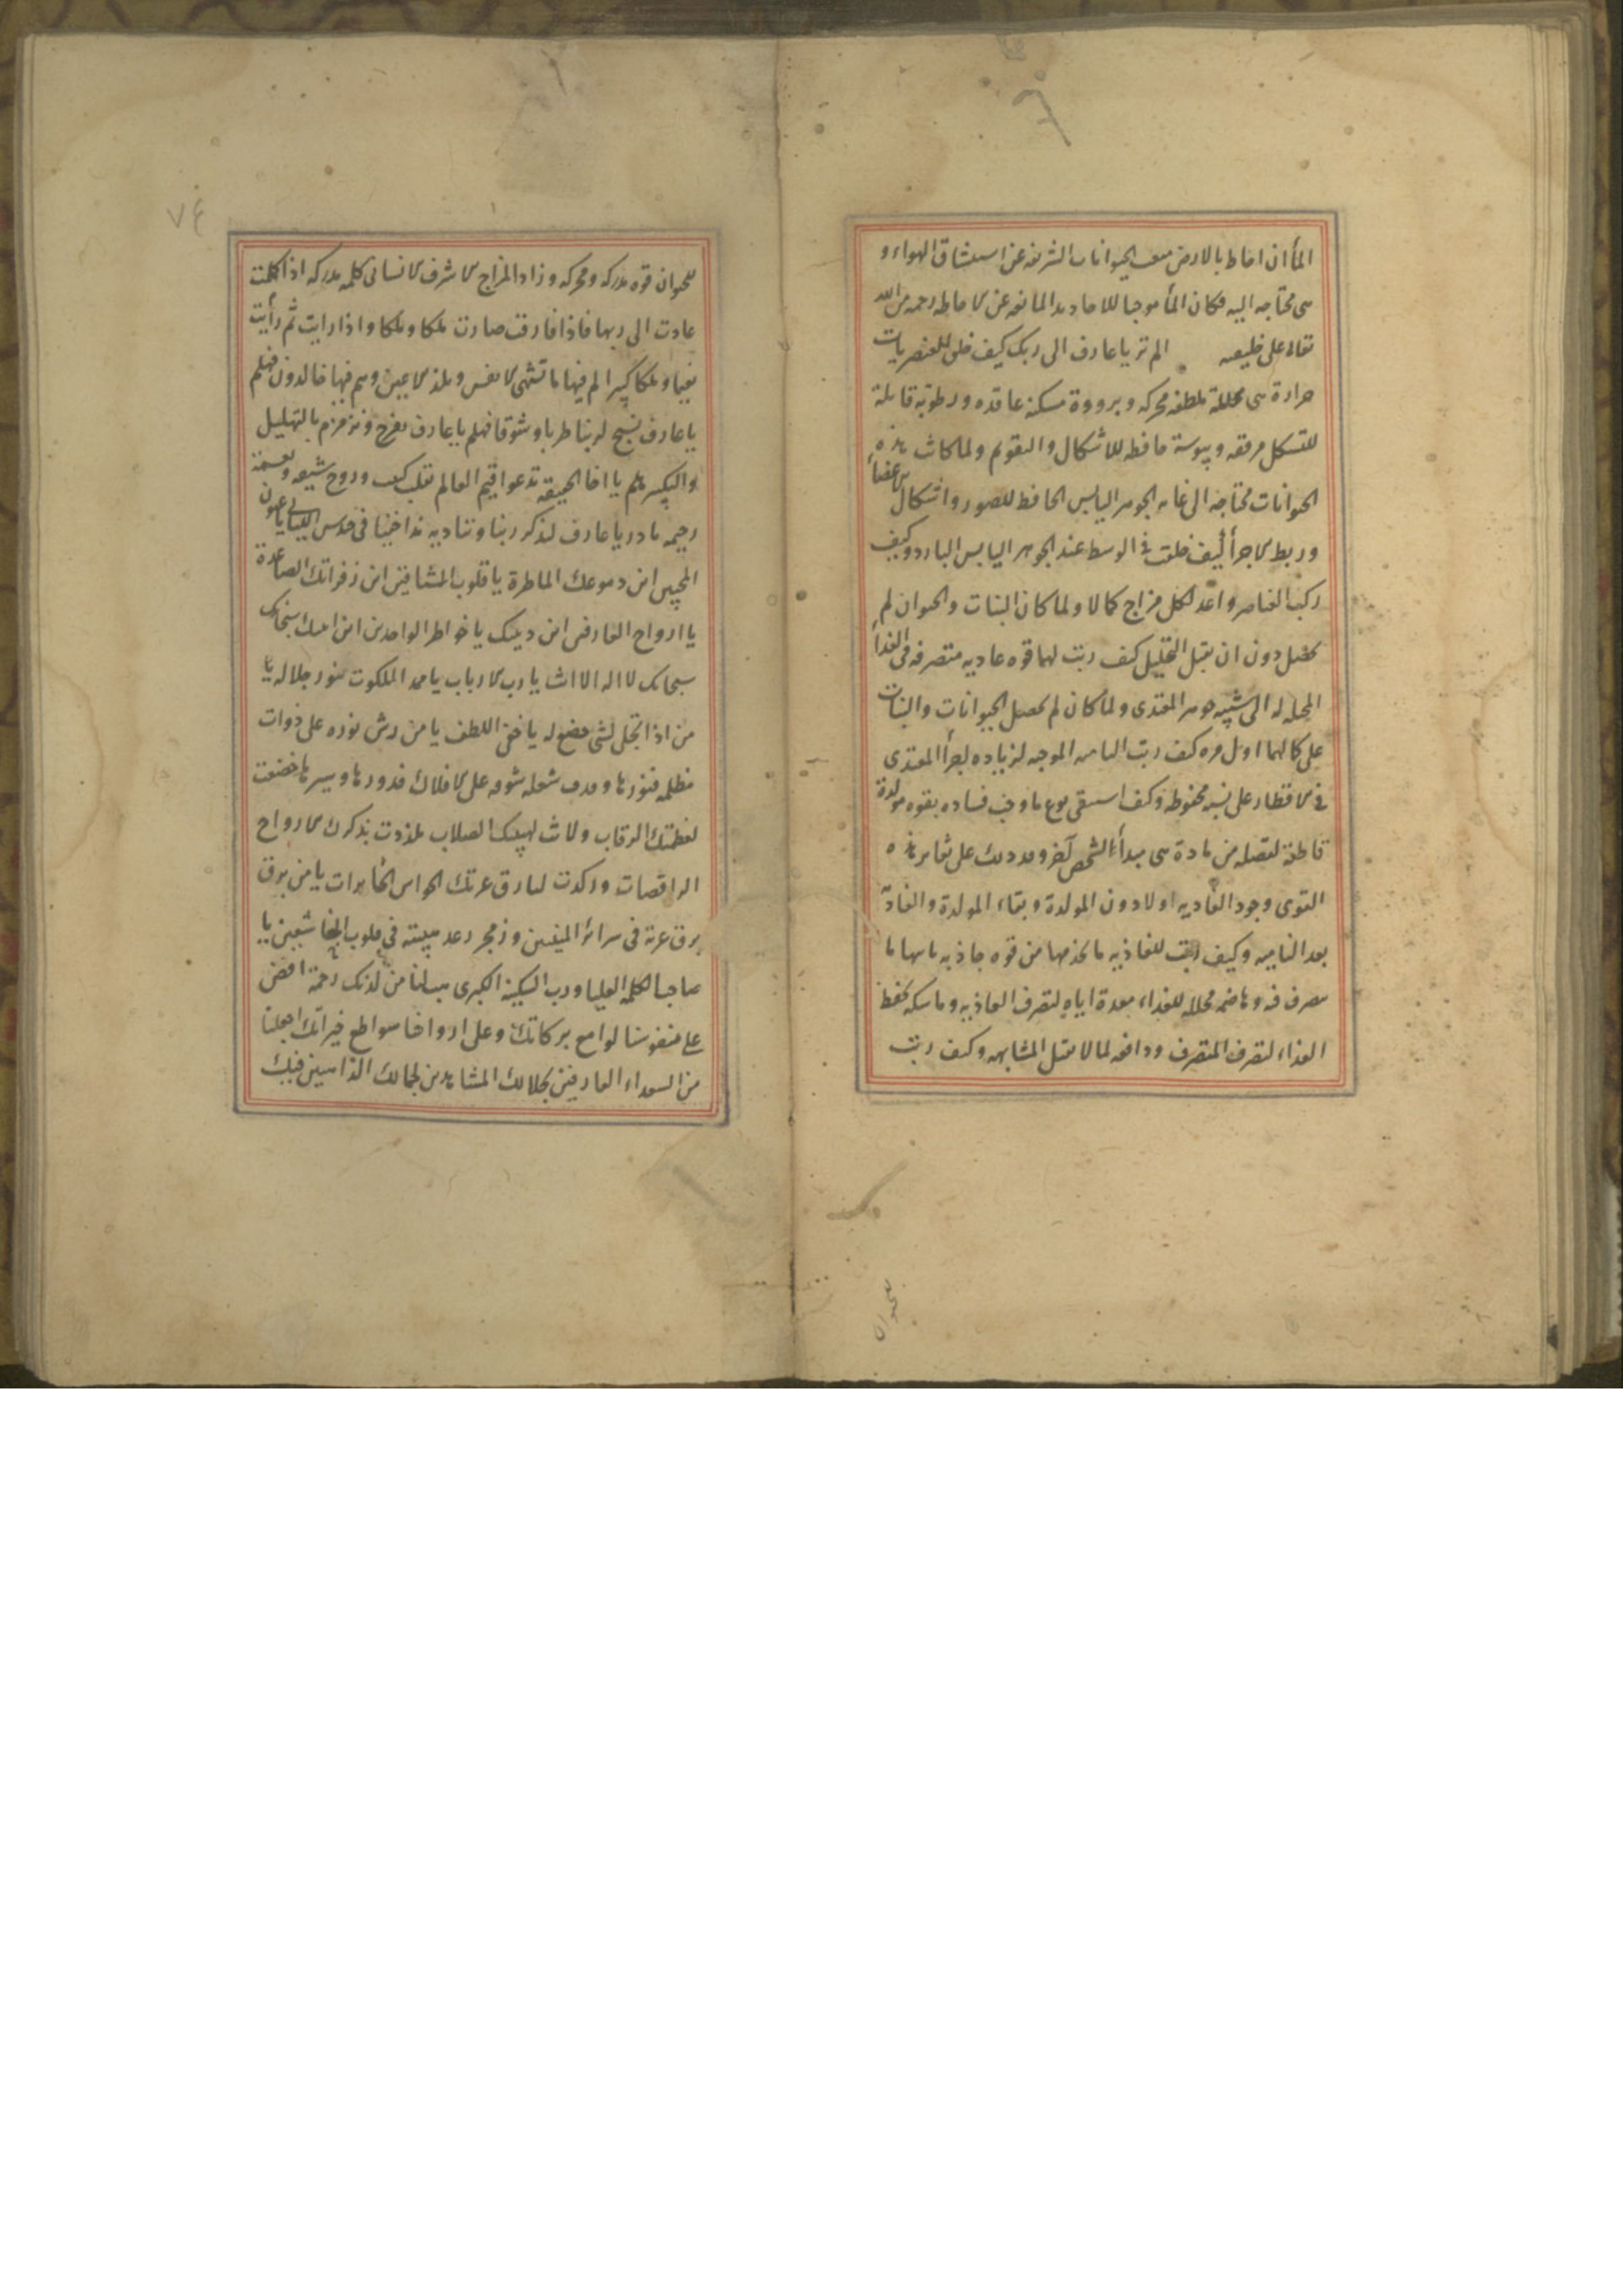 المأ ان احاط بالارض منعت الحيوانات الشريفه عن استنشاق الهواء و
هى محتاجه اليه فكان المأ موجبا للاخاديد المانعه عن الاحاطه رحمه من الله
تعالى على خليقته الم تر يا عارف الى ربك كيف خلق للعنصريات
حرارة هى محللة ملطفه محركه وبرودة مسكنه عاقده ورطوبة قابلة
للتشكل مرققه ويبوسة حافظه للاشكال والتقويم ولما كانت هذه
الحيوانات محتاجه الى الجوهر اليابس الحافظ للصور واشكال الاعضأ
وربط الاجزأ كيف خلقت فى الوسط عند الجوهر اليابس البارد وكيف
ركب العناصر واعد لكل مزاج كمالا ولما كان النبات والحيوان لم
يحصل دون ان يقبل التحليل كيف رتب لهما قوه غاديه متصرفه فى الغذأ
المحيله له الى شبيه جوهر المغتدى ولما كان لم يحصل الحيوانات والنبات
على كمالهما اول مره كيف رتب الناميه الموجبه لزياده اجزأ المغتدى
فى الاقطار على نسبه محفوظه وكيف استبقى نوع ما وجب فساده بقوه مولدة
قاطعة لفضله من مادة هى مبدأ لشخص آخر ويدلك على تغاير هذه
القوى وجود الغاديه اولا دون المولدة وبقاء المولدة والغاذية
بعد الناميه وكيف رتب للغاذيه ما يخدمها من قوه جاذبه تاتيها ما
يتصرف فيه وهاضمه محلله للغداء معدة اياه لتصرف الغاذيه وماسكه تحفظ
الغذاء لتصرف المتصرف ودافعه لما لا يقبل المشابهه وكيف رتب
للحيوان
٧٤
للحيوان قوه مدركه ومحركه وزاد المزاج الاشرف الانسانى كلمه مدركه اذا كملت
عادت الى ربها فاذا فارقت صارت ملكا وملكا واذا رايت ثم رأيت
نعيما وملكا كبيرا لم فيها ما تشتهى الانفس وتلذ الاعين وهم فيها خالدون فهلم
يا عارف نسبح لربنا طربا وشوقا فهلم يا عارف نفرح ونزمزم بالتهليل
والتكبير هلم يا اخا الحقيقه ندعوا قيم العالم بقلب كئيب وروح شيقه ونغمة
رخيمه بادر يا عارف لنذكر ربنا ونناديه ندا خفيا فى حندس الليالى يا عيون
المحبين اين دموعك الماطرة يا قلوب المشتاقين اين زفراتك الصاعدة
يا ارواح العارفين اين يا خواطر الواجدين اين سبحانك
سبحانك لا اله الا انت يا رب الارباب يا ممد الملكوت بنور جلاله يا
من اذا تجلى لشى خضع له يا خفى اللطف يا من رش نوره على ذوات
مظلمه فنورها وقذف شعله شوقه على الافلاك فدورها وسيرها خضعت
لعظمتك الرقاب ولانت لهيبتك الصلاب تلذذت بذكرك الارواح
الراقصات وركدت لبارق عزتك الحواس الخابرات يا من برق
برق عزته فى سرائر المنيبين وزمجر رعد هيبته فى قلوب الخاشعين يا
صاحب الكلمه العليا ورب السكينه الكبرى هب لنا من لدنك رحمة افض
على نفوسنا لوامع بركاتك وعلى ارواحنا سواطع خيراتك اجعلنا
من السعداء العارفين بجلالك المشاهدين لجمالك الذاهبين فيك